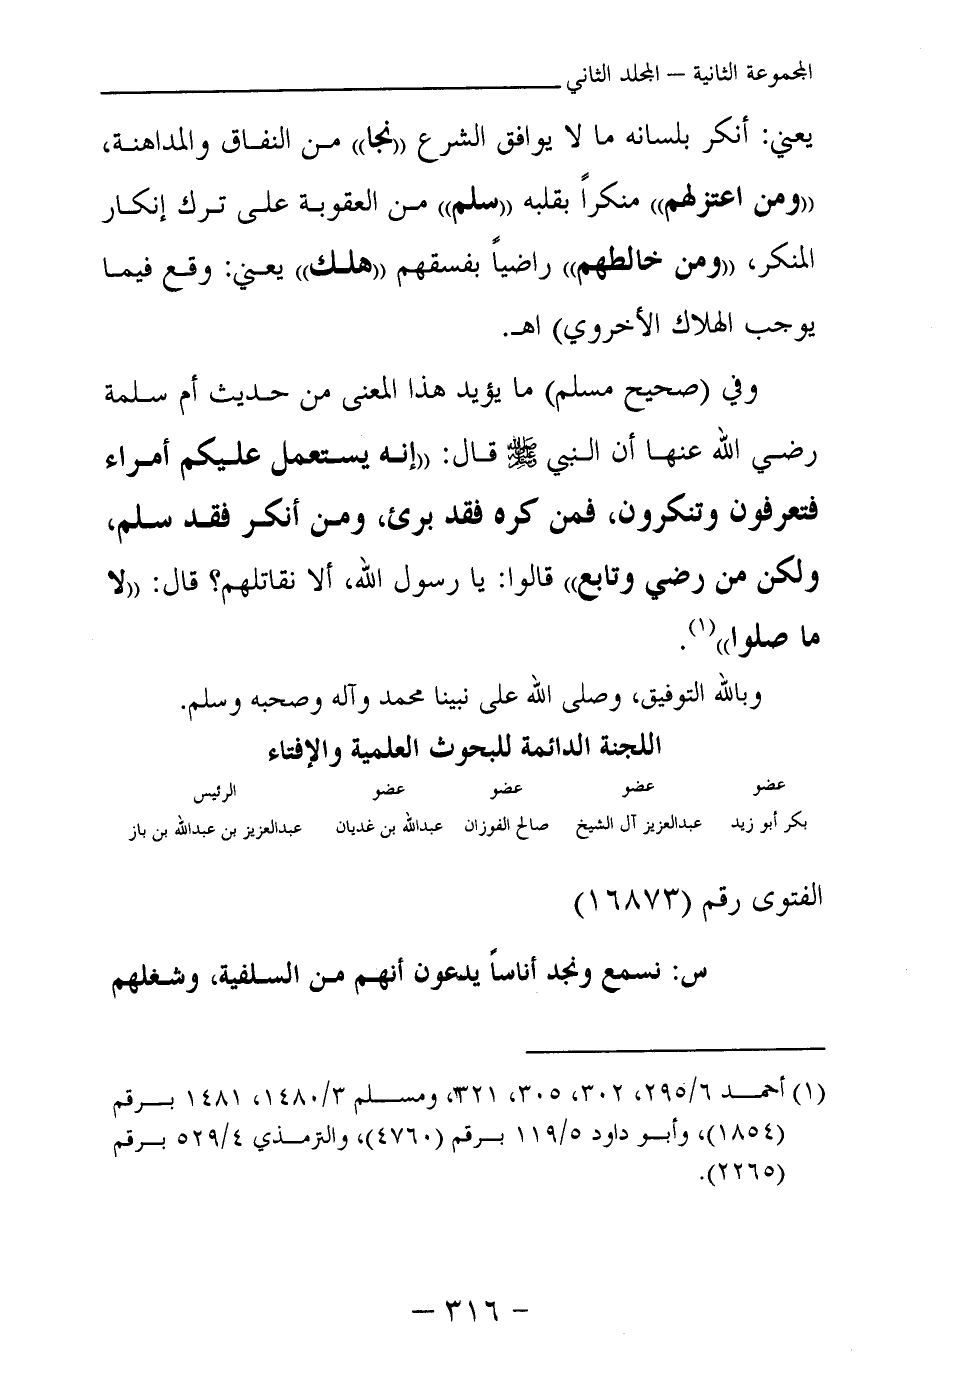 المجموعة الثانية – المجلد الثاني
يعني: أنكر بلسانه ما لا يوافق الشرع ((نجا)) من النفاق والمداهنة،
((ومن اعتزلهم)) منكراً بقلبه ((سلم)) من العقوبة على ترك إنكار
المنكر، ((ومن خالطهم)) راضياً بفسقهم ((هلك)) يعني: وقع فيما
يوجب الهلاك الأخروي) اهـ.
وفي (صحيح مسلم) ما يؤيد هذا المعنى من حديث أم سلمة
رضي الله عنها أن النبي ﷺ قال: ((إنه يستعمل عليكم أمراء
فتعرفون وتنكرون، فمن كره فقد برئ، ومن أنكر فقد سلم،
ولكن من رضي وتابع)) قالوا: يا رسول الله، ألا نقاتلهم؟ قال: ((لا
ما صلوا))(١).
وبالله التوفيق، وصلى الله على نبينا محمد وآله وصحبه وسلم.
اللجنة الدائمة للبحوث العلمية والإفتاء
عضو عضو عضو عضو الرئيس
بكر أبو زيد عبدالعزيز آل الشيخ صالح الفوزان عبدالله بن غديان عبدالعزيز بن عبدالله بن باز
الفتوى رقم (١٦٨٧٣)
س: نسمع ونجد أناساً يدعون أنهم من السلفية، وشغلهم
(١) أحمد ٢٩٥/٦، ٣٠٢، ٣٠٥، ٣٢١، ومسلم ١٤٨٠/٣، ١٤٨١ برقم
(١٨٥٤)، وأبو داود ١١٩/٥ برقم (٤٧٦٠)، والترمذي ٥٢٩/٤ برقم
(٢٢٦٥).
– ٣١٦ –